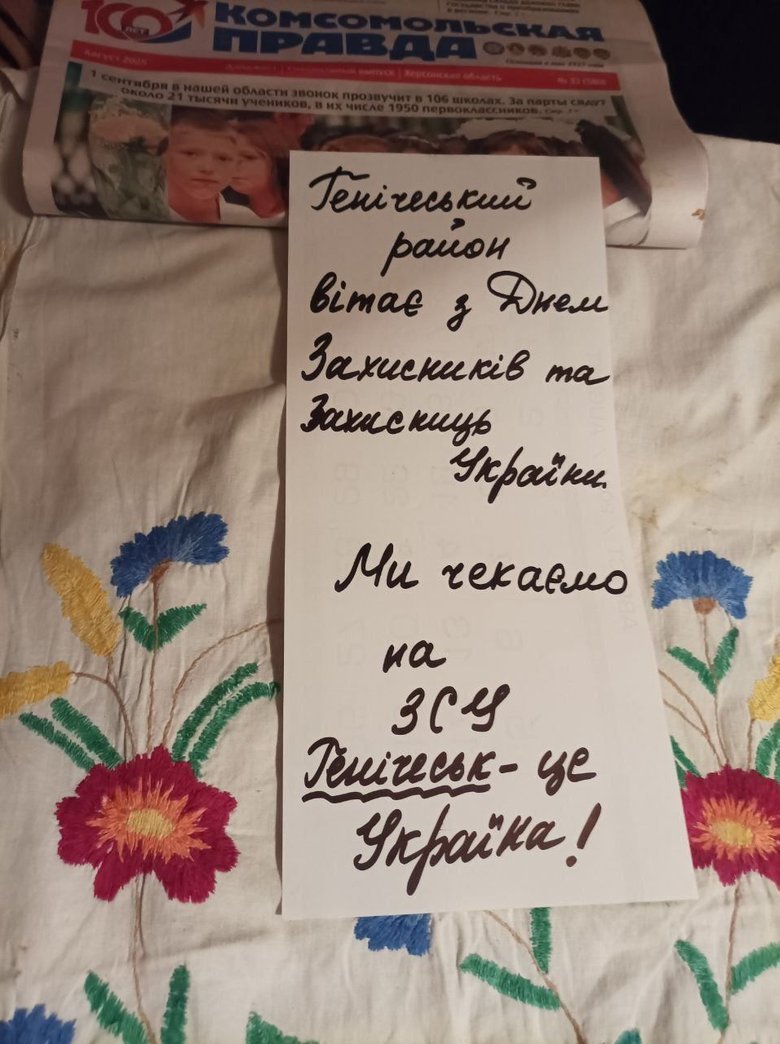 100
ЛЕТ
КОМСОМОЛЬСКАЯ
ПРАВДА
Август 2025
Херсонская область
1 сентября в нашей области звонок прозвучит в 106 школах. За парты сядут
около 21 тысячи учеников, в их числе 1950 первоклассников.
Генічеський
район
вітає з Днем
Захисників та
Захисниць
України.
Ми чекаємо
на
ЗСУ
Генічеськ - це
Україна!